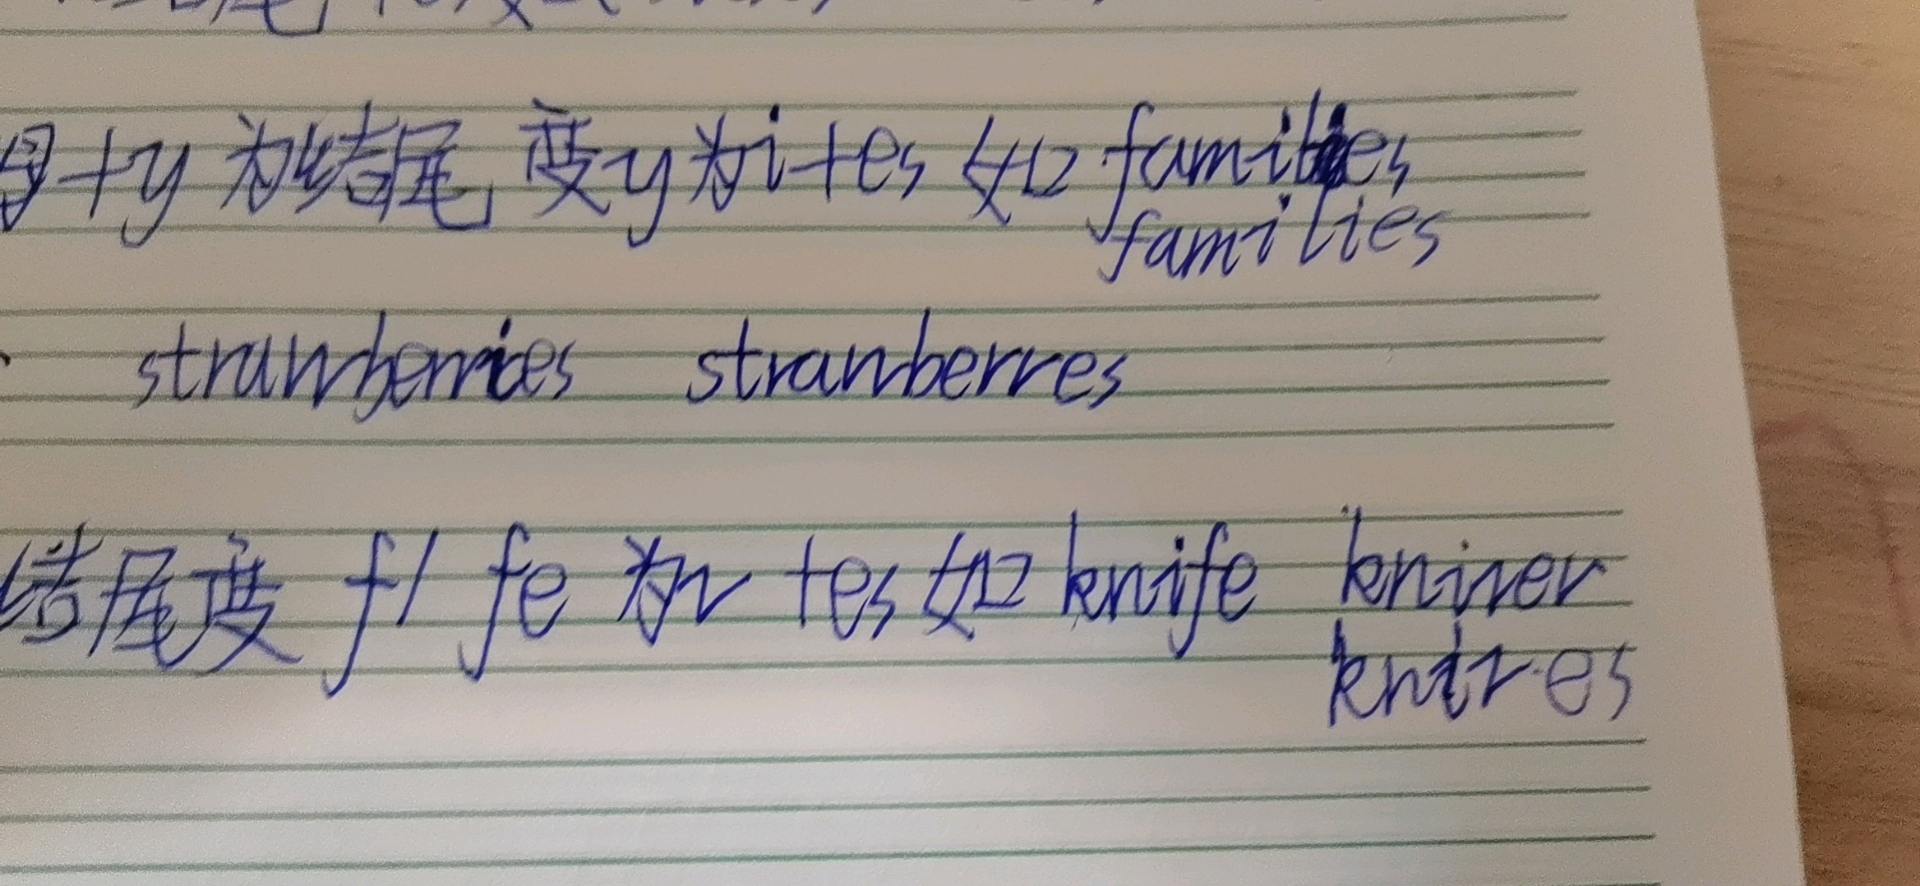 +y 为结尾 变y为i+es 如 families
families
strawberries stranberres
结尾变 f/fe 为v +es 如 knife kniver
knives